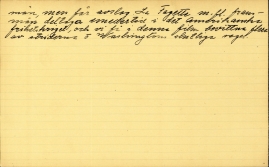 män, men får avslag La Fayette m.fl. fram-
män deltaga emellertid i det amerikanska
frihetskriget, och vi få i denna film bevittna flera
av händerna i Washingtons skattliga